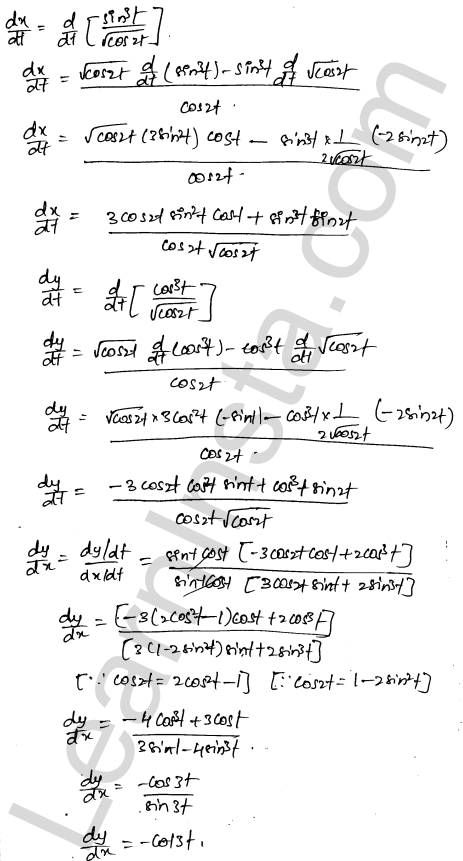 dx/dt = d/dt [sin³t/√cos2t].
dx/dt = (√cos2t d/dt (sin³t) - sin³t d/dt √cos2t)/cos2t.
dx/dt = (√cos2t (3sin²t) cost - sin³t × 1/(2√cos2t) (-2sin2t))/cos2t.
dx/dt = (3cos2t sin²t cost + sin³t sin2t)/(cos2t √cos2t)
dy/dt = d/dt [cos³t/√cos2t]
dy/dt = (√cos2t d/dt (cos³t) - cos³t d/dt √cos2t)/cos2t
dy/dt = (√cos2t × 3cos²t (-sint) - cos³t × 1/(2√cos2t) (-2sin2t))/cos2t.
dy/dt = (-3cos2t cos²t sint + cos³t sin2t)/(cos2t √cos2t)
dy/dx = (dy/dt)/(dx/dt) = (sint cost [-3cos2t cost + 2cos³t])/(sint cost [3cos2t sint + 2sin³t])
dy/dx = [-3(2cos²t-1)cost + 2cos³t]/[3(1-2sin²t)sint + 2sin³t]
[∵ cos2t = 2cos²t-1] [∵ cos2t = 1-2sin²t]
dy/dx = (-4cos³t + 3cost)/(3sint - 4sin³t).
dy/dx = -cos3t/sin3t
dy/dx = -cot3t.
LearnInsta.com